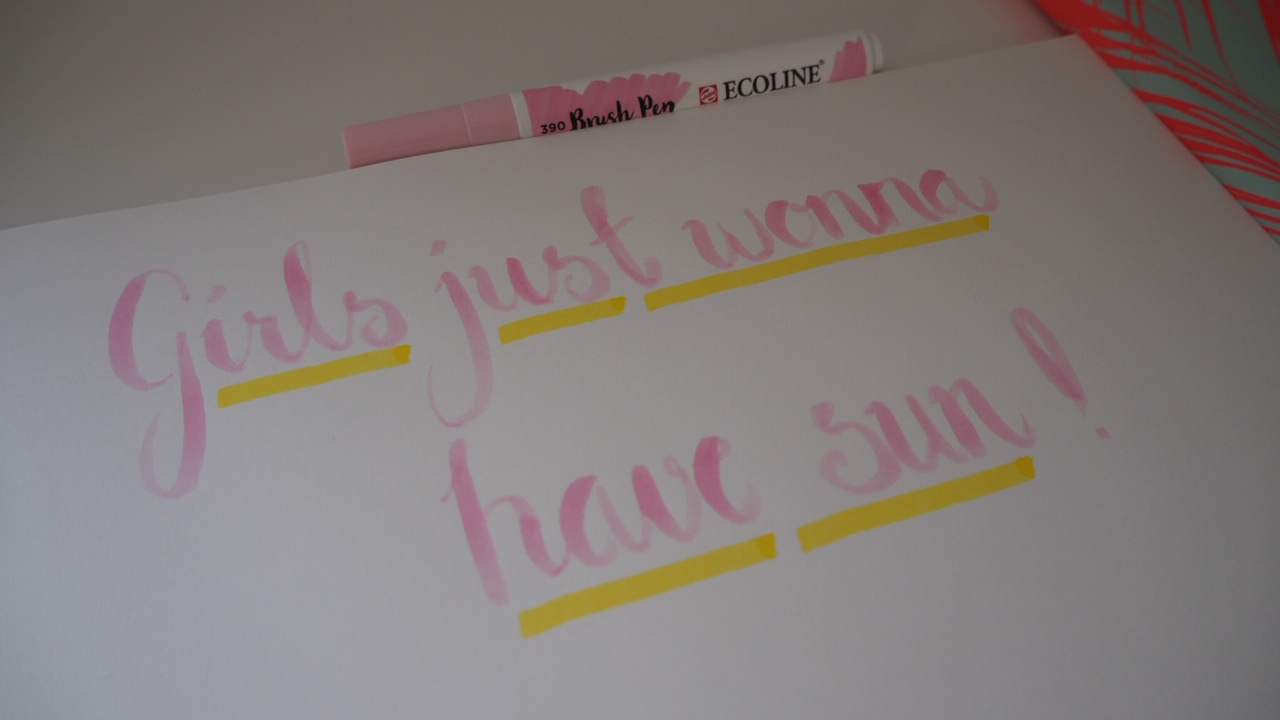 390 Brush Pen ECOLINE®
Girls just wonna
have sun!